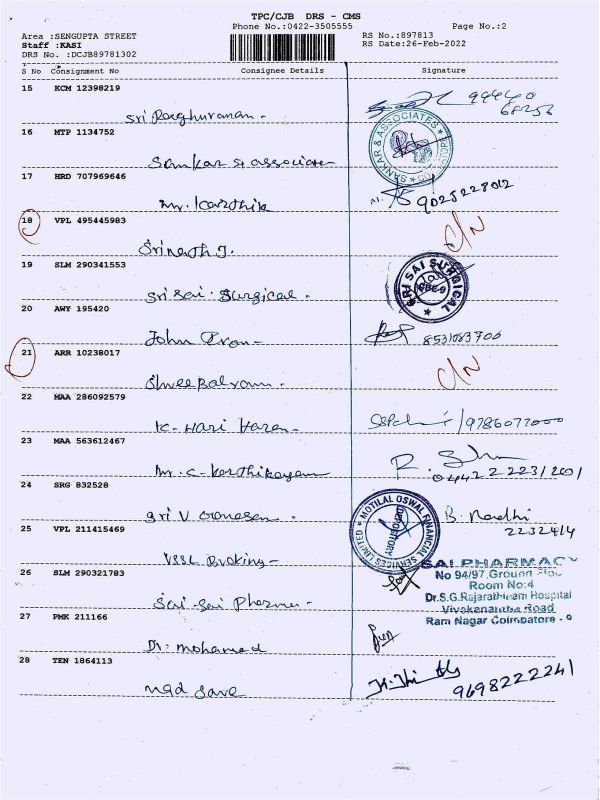 TPC/CJB DRS - CMS
Phone No.:0422-3505555 Page No.:2
Area :SENGUPTA STREET RS No.:897813
Staff :KASI RS Date:26-Feb-2022
DRS No. :DCJB89781302
S No Consignment No Consignee Details Signature
15 KCM 12398219
Sri Raghuraman - 99440
68256
16 MTP 1134752
Sankar & associate SANKAR & ASSOCIATES
17 HRD 707969646
Mr. Karthik 9025228012
18 VPL 495445983 C/N
Srinath J.
19 SLM 290341553
Sri Sai Surgical. SRI SAI SURGICAL
20 AWY 195420
John 8531083700
21 ARR 10238017 C/N
Shree Balram -
22 MAA 286092579
K. Hari Haran - /9786077000
23 MAA 563612467
Mr. C. Karthikeyan 04422223/2001
24 SRG 832528
Sri V Ganesan. B.
25 VPL 211415469 MOTILAL OSWAL FINANCIAL SERVICES LIMITED DEPOSITORY
VSSL Broking - 2232414
26 SLM 290321783 SAI PHARMACY
No 94/97, Ground Floor
Room No:4
Sai Sai Pharma - Dr.S.G.Rajarathinam Hospital
Vivekanantha Road
27 PMK 211166 Ram Nagar Coimbatore - 9
Dr. Mohamed
28 TEN 1864113
9698222241